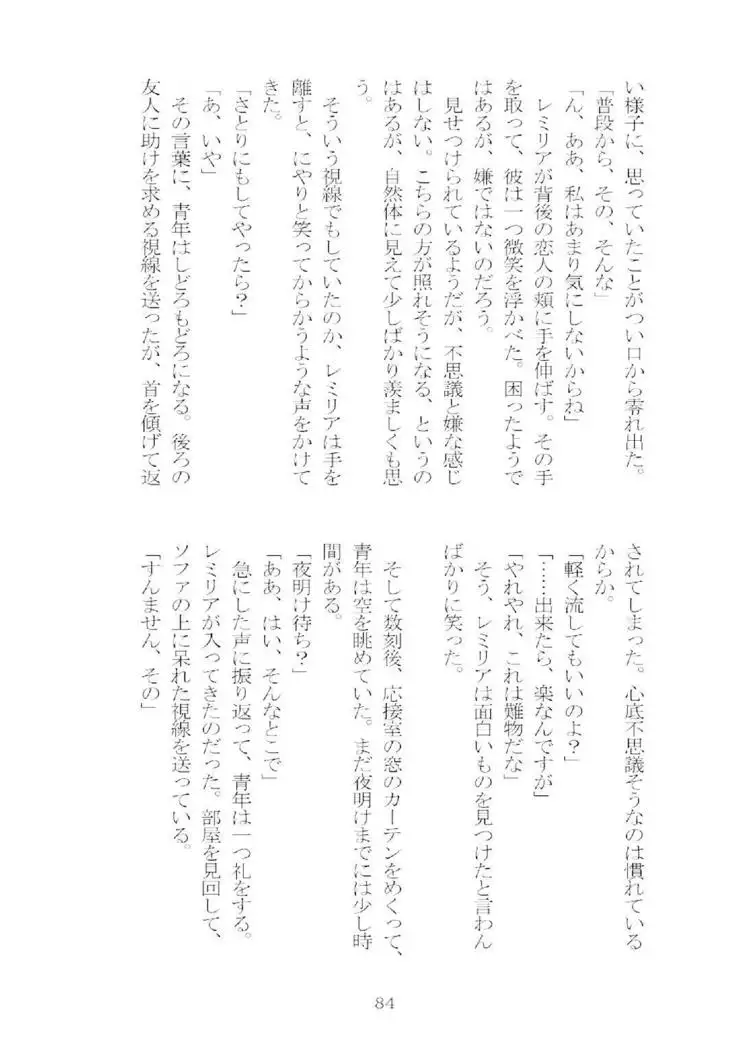 い様子に、思っていたことがつい口から零れ出た。
「普段から、その、そんな」
「ん、ああ、私はあまり気にしないからね」
レミリアが背後の恋人の頬に手を伸ばす。その手
を取って、彼は一つ微笑を浮かべた。困ったようで
はあるが、嫌ではないのだろう。
見せつけられているようだが、不思議と嫌な感じ
はしない。こちらの方が照れそうになる、というの
はあるが、自然体に見えて少しばかり羨ましくも思
う。
そういう視線でもしていたのか、レミリアは手を
離すと、にやりと笑ってからかうような声をかけて
きた。
「さとりにもしてやったら？」
「あ、いや」
その言葉に、青年はしどろもどろになる。後ろの
友人に助けを求める視線を送ったが、首を傾げて返
されてしまった。心底不思議そうなのは慣れている
からか。
「軽く流してもいいのよ？」
「……出来たら、楽なんですが」
「やれやれ、これは難物だな」
そう、レミリアは面白いものを見つけたと言わん
ばかりに笑った。
そして数刻後、応接室の窓のカーテンをめくって、
青年は空を眺めていた。まだ夜明けまでには少し時
間がある。
「夜明け待ち？」
「ああ、はい、そんなとこで」
急にした声に振り返って、青年は一つ礼をする。
レミリアが入ってきたのだった。部屋を見回して、
ソファの上に呆れた視線を送っている。
「すんません、その」
84